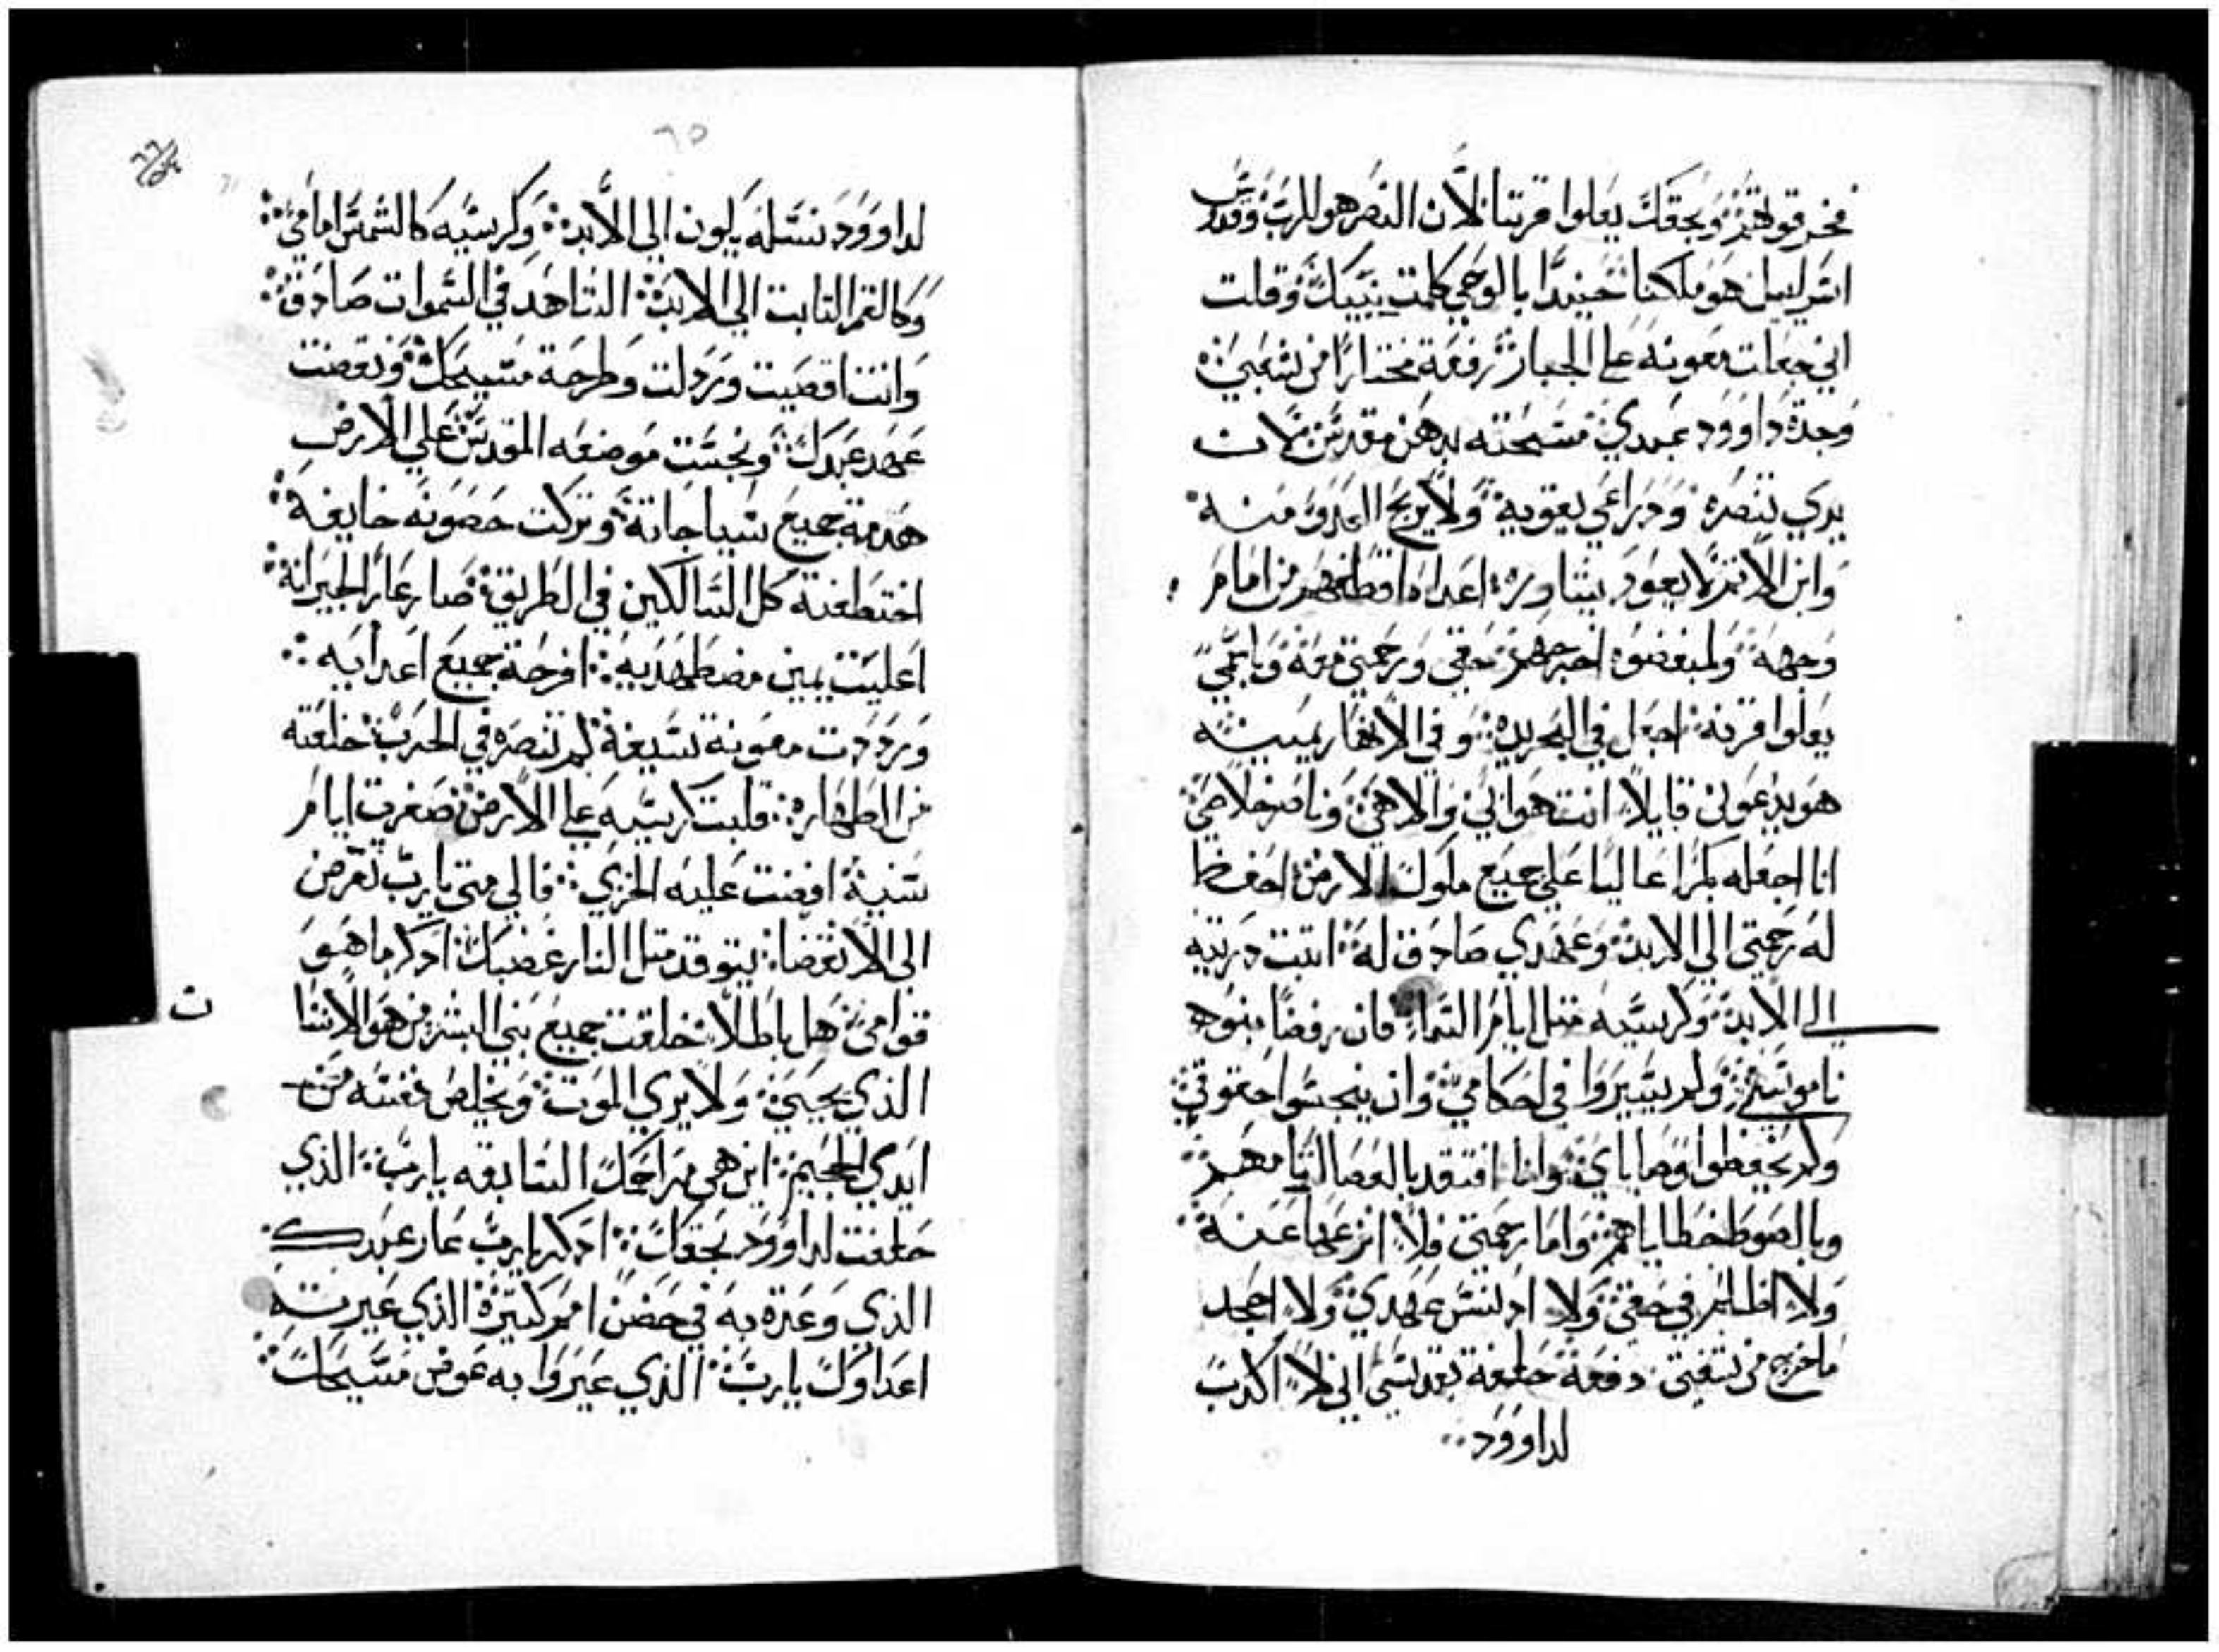 فخر قوتهم وبحقك يعلوا قرننا لان النصر هو للرب وقدوس
اسراييل هو ملكنا حينيدا بالوحي كلمت بنييك وقلت
اني جعلت معونه علي الجبار رفعة مختارا من شعبي
وجدة داوود عبدي مسحته بدهن مقدس لان
يدي تنصره ودراعي يقويه ولا يربح العدو منه
وابن الاتم لا يعود يناوره اعداه اقطعهم من امام
وجهه ولمبغضوه اخرجهم حقي ورحمتي معه وباسمي
يعلوا قرنه اجعل في البحر يده وفي الانهار يمينه
هو يدعوني قايلا انت هو ابي والاهي وناصر خلاصي
انا اجعله بكرا عاليا علي جميع ملوك الارض احفظ
له رحمتي الي الابد وعهدي صادق له اتبت دريته
الي الابد وكرسيه متل ايام السماء فان رفضا بنوه
ناموسي ولم يسيروا في احكامي وان ينجسوا حقوقي
ولم يحفظوا وصاياي وانا افتقد بالعصا اتامهم
وبالصوط خطاياهم واما رحمتي فلا انزعها عنه
ولا اظلم في حقي ولا ادنس عهدي ولا اجحد
ماخرج من شفتي دفعة حلفة بقدسي اني لا اكدب
لداوود
٦٥
لداوود نسله يكون الي الابد وكرسيه كالشمس امامي
وكالقمر التابت الي الابد الشاهد في السموات صادق
وانت اقصيت وردلت وطرحة مسيحك ونقضت
عهد عبدك ونجست موضعه المقدس علي الارض
هدمة جميع سياجاته وتركت حصونه خايفة
اختطفته كل السالكين في الطريق صار عارا لجيرانه
اعليت يمين مضطهديه افرحة جميع اعدايه
ورددت معونة سيفه لم تنصره في الحرب خلعته
من الطهاره قلبت كرسيه علي الارض صغرت ايام
سنيه افضت عليه الخزي فالي متي يارب تعرض
الي الانقضا يتوقد متل النار غضبك ادكر ما هو
قوامي هل باطلا خلقت جميع بني البشر من هو الانسا
ن
الذي يحيي ولا يري الموت ويخلص نفسه من
ايدي الجحيم اين هي مراحمك السابقه يارب الذي
حلفت لداوود بحقك ادكر يارب عار عبدك
الذي وعدة به في حضن امم كتيرة الذي عيرته
اعداوك يارب الذي عيروا به عوض مسيحك